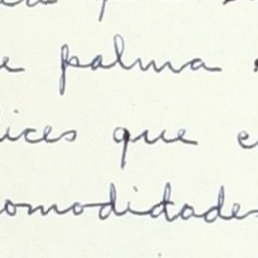 palma
ices que e
omodidades